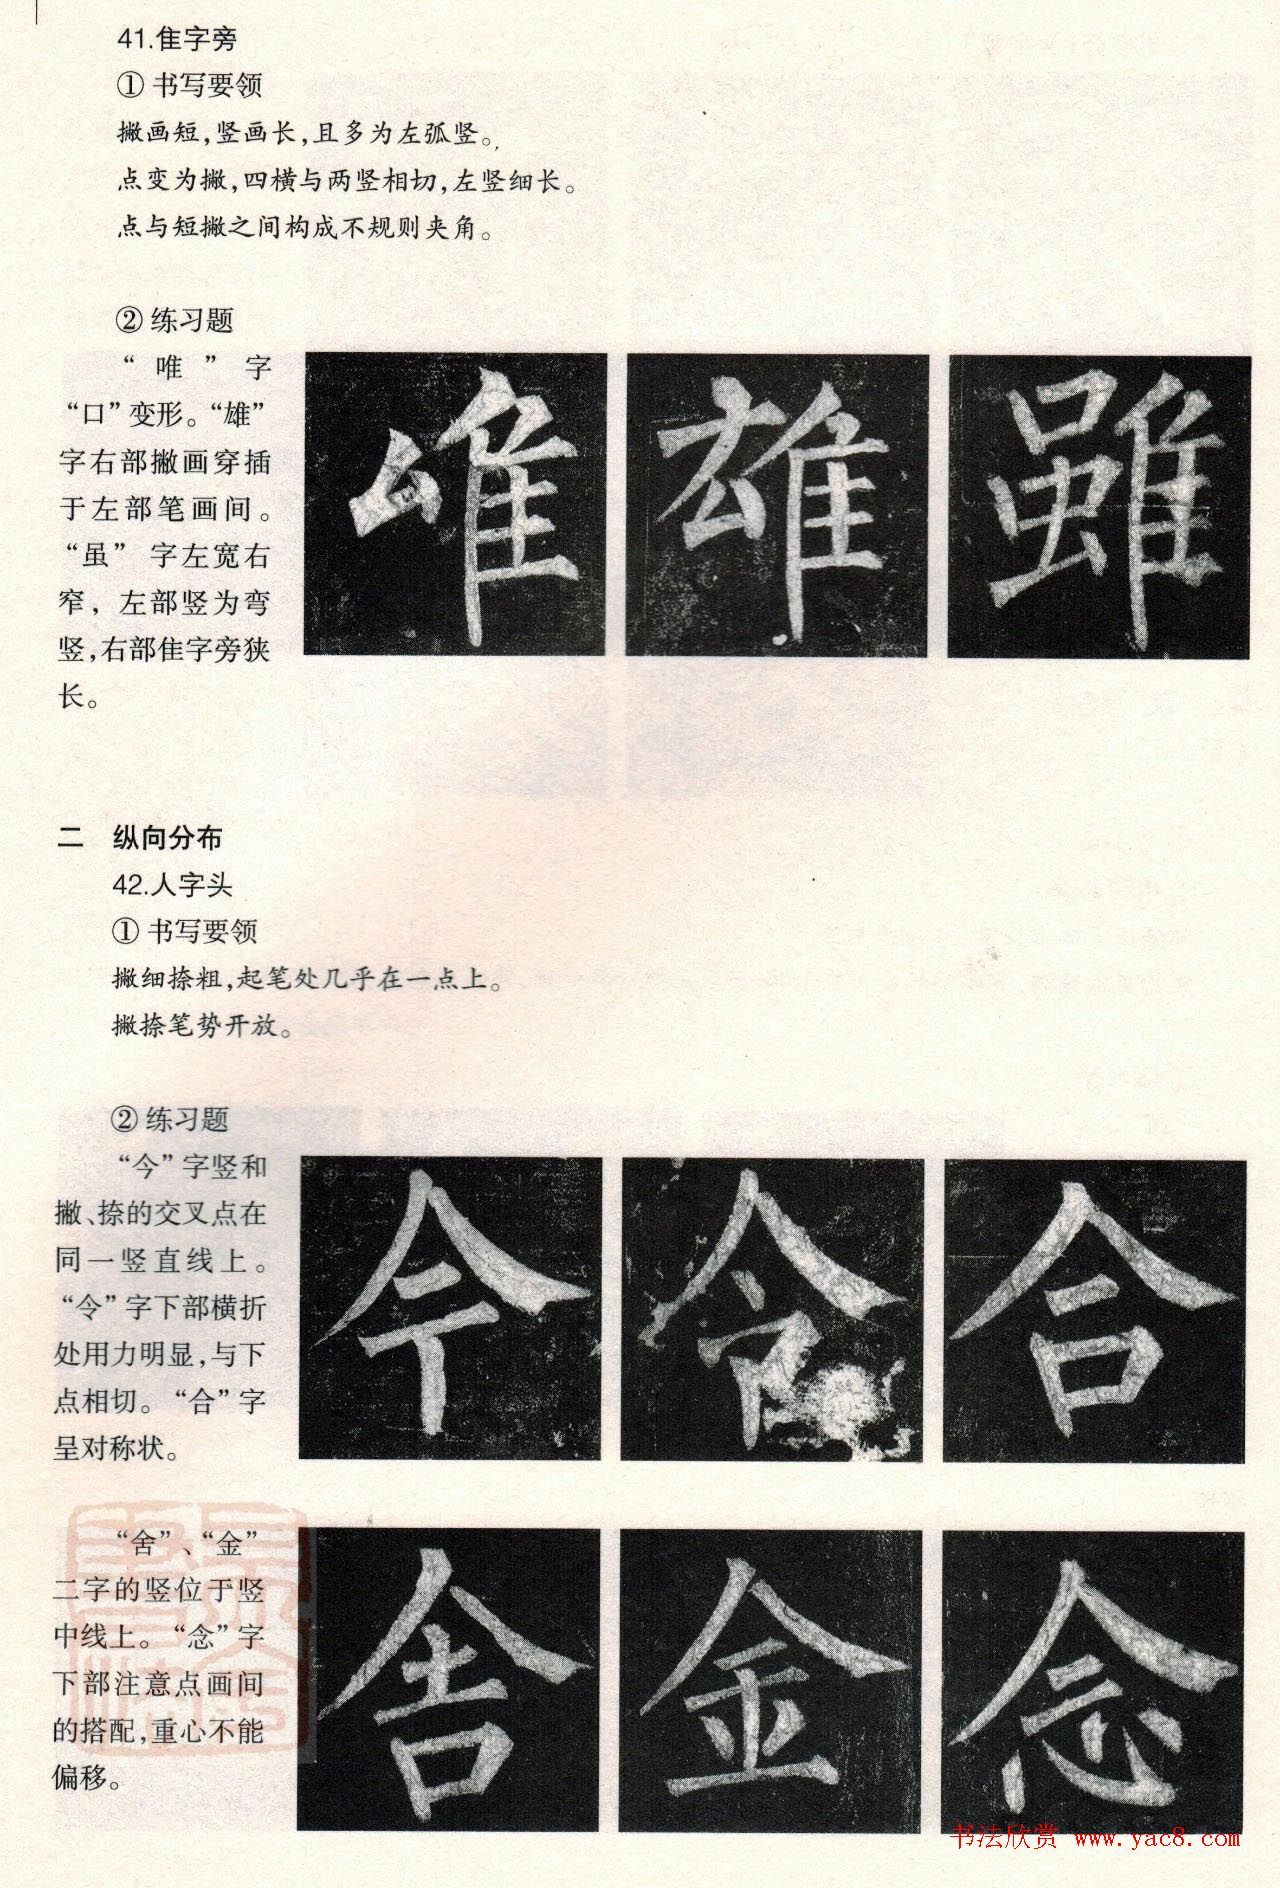 41.隹字旁
① 书写要领
撇画短，竖画长，且多为左弧竖。
点变为撇，四横与两竖相切，左竖细长。
点与短撇之间构成不规则夹角。
② 练习题
“唯”字
“口”变形。“雄”
字右部撇画穿插
于左部笔画间。
“虽”字左宽右
窄，左部竖为弯
竖，右部隹字旁狭
长。
唯 雄 雖
二 纵向分布
42.人字头
① 书写要领
撇细捺粗，起笔处几乎在一点上。
撇捺笔势开放。
② 练习题
“今”字竖和
撇、捺的交叉点在
同一竖直线上。
“令”字下部横折
处用力明显，与下
点相切。“合”字
呈对称状。
今 令 合
“舍”、“金”
二字的竖位于竖
中线上。“念”字
下部注意点画间
的搭配，重心不能
偏移。
舍 金 念
书法欣赏 www.yac8.com